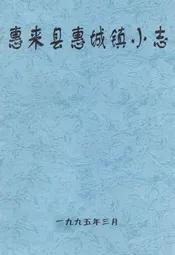 惠来县惠城镇小志
一九九五年三月